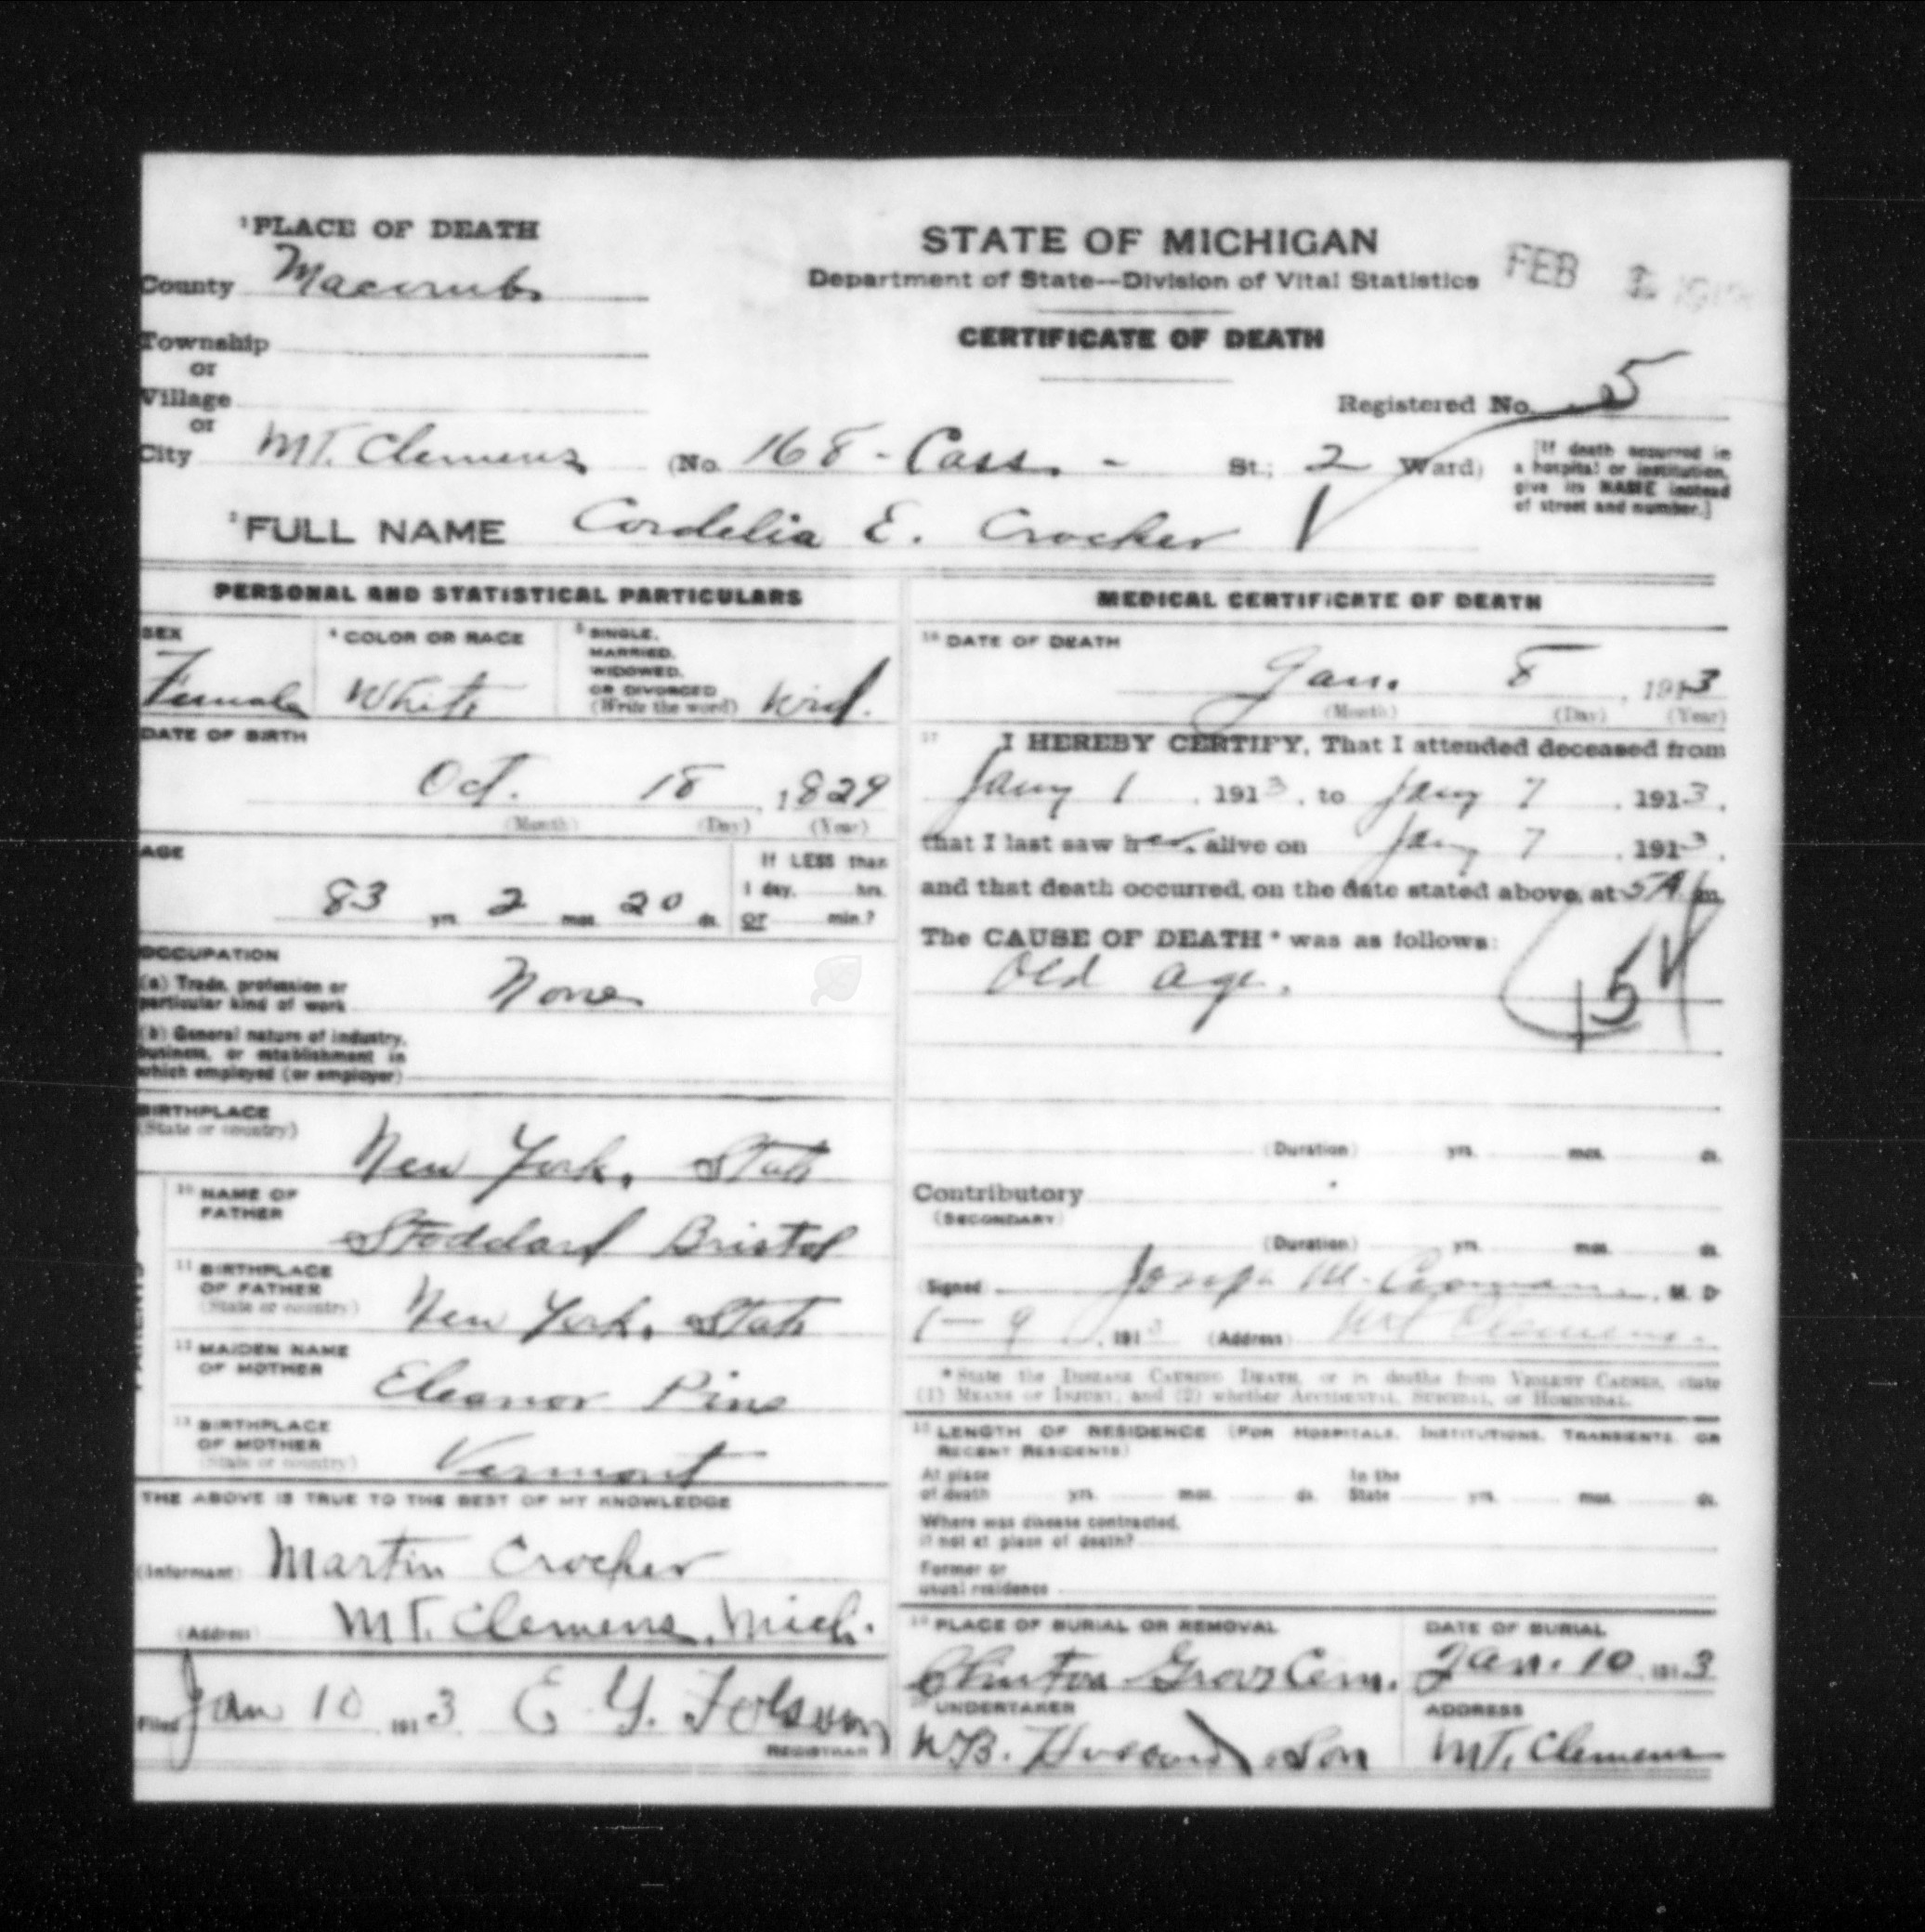 ¹PLACE OF DEATH
County Macomb
Township
or
Village
or
City Mt. Clemens (No. 168 - Cass. - St.; 2 Ward)
STATE OF MICHIGAN
Department of State—Division of Vital Statistics
FEB
CERTIFICATE OF DEATH
Registered No. 5
[If death occurred in
a hospital or institution,
give its NAME instead
of street and number.]
²FULL NAME Cordelia E. Crocker
PERSONAL AND STATISTICAL PARTICULARS
SEX
Female
⁴ COLOR OR RACE
White
⁵ SINGLE,
MARRIED,
WIDOWED,
OR DIVORCED
(Write the word) Wid.
DATE OF BIRTH
Oct. 18, 1829
(Month) (Day) (Year)
AGE
83 yrs. 2 mos. 20 ds.
If LESS than
1 day, hrs.
or min.?
OCCUPATION
(a) Trade, profession or
particular kind of work None
(b) General nature of industry,
business, or establishment in
which employed (or employer)
BIRTHPLACE
(State or country)
New York, State
PARENTS
¹⁰ NAME OF
FATHER
Stoddard Bristol
¹¹ BIRTHPLACE
OF FATHER
(State or country)
New York, State
¹² MAIDEN NAME
OF MOTHER
Eleanor Pine
¹³ BIRTHPLACE
OF MOTHER
(State or country)
Vermont
THE ABOVE IS TRUE TO THE BEST OF MY KNOWLEDGE
(Informant) Martin Crocker
(Address) Mt. Clemens, Mich.
Filed Jan 10 1913 E. Y. Folsom
REGISTRAR
MEDICAL CERTIFICATE OF DEATH
¹⁶ DATE OF DEATH
Jan. 8, 1913
(Month) (Day) (Year)
¹⁷ I HEREBY CERTIFY, That I attended deceased from
Jany 1, 1913, to Jany 7, 1913,
that I last saw her alive on Jany 7, 1913,
and that death occurred, on the date stated above, at 5 A. m.
The CAUSE OF DEATH* was as follows:
Old age.
154
(Duration) yrs. mos. ds.
Contributory
(SECONDARY)
(Duration) yrs. mos. ds.
(Signed) Joseph M. M. D
1-9, 1913 (Address) Mt Clemens.
*State the DISEASE CAUSING DEATH, or in deaths from VIOLENT CAUSES, state
(1) MEANS OF INJURY; and (2) whether ACCIDENTAL, SUICIDAL, or HOMICIDAL.
¹⁸ LENGTH OF RESIDENCE (FOR HOSPITALS, INSTITUTIONS, TRANSIENTS, OR
RECENT RESIDENTS)
At place
of death yrs. mos. ds. In the
State yrs. mos. ds.
Where was disease contracted,
if not at place of death?
Former or
usual residence
¹⁹ PLACE OF BURIAL OR REMOVAL
Clinton Grove Cem.
DATE OF BURIAL
Jan. 10 1913
UNDERTAKER
W.B. & Son
ADDRESS
Mt. Clemens